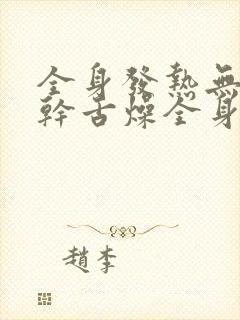 全身發熱無
幹舌燥全身
趙李